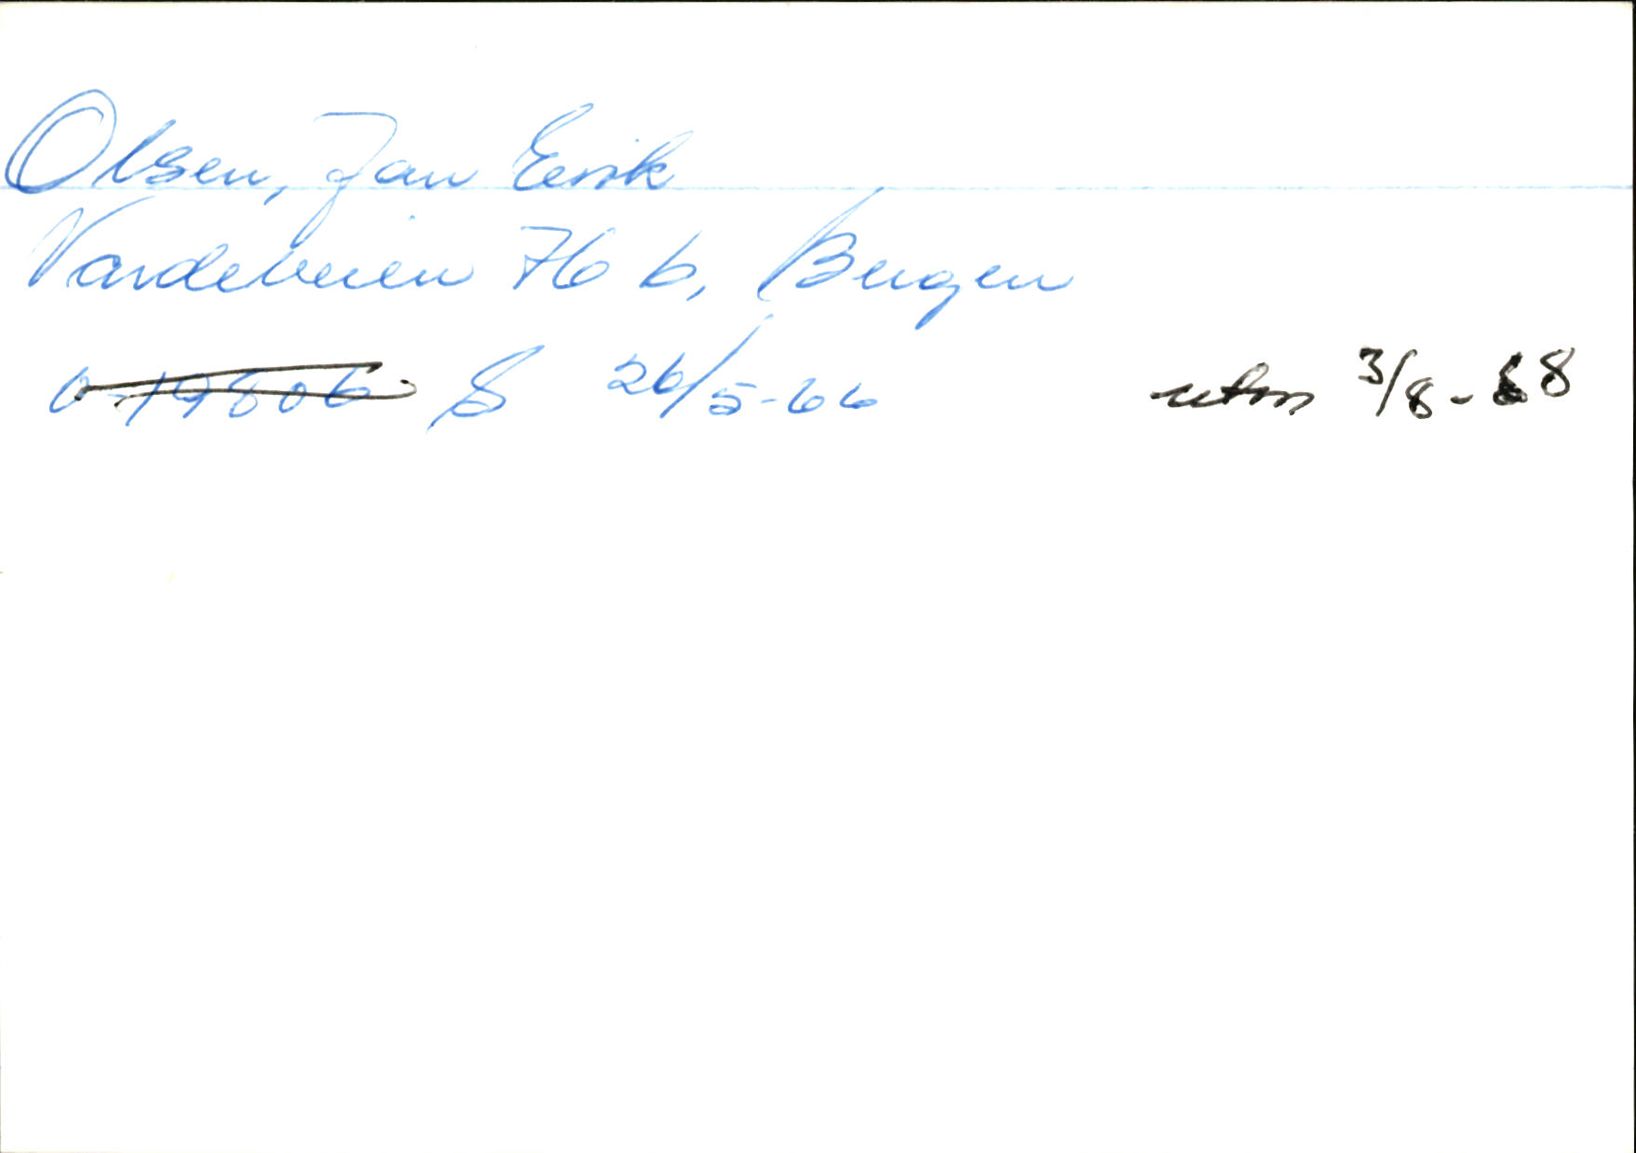 Olsen, Jan Eirik
Vardeveien 76 b, Bergen
0-19806 S 26/5-66 utm 3/8-68